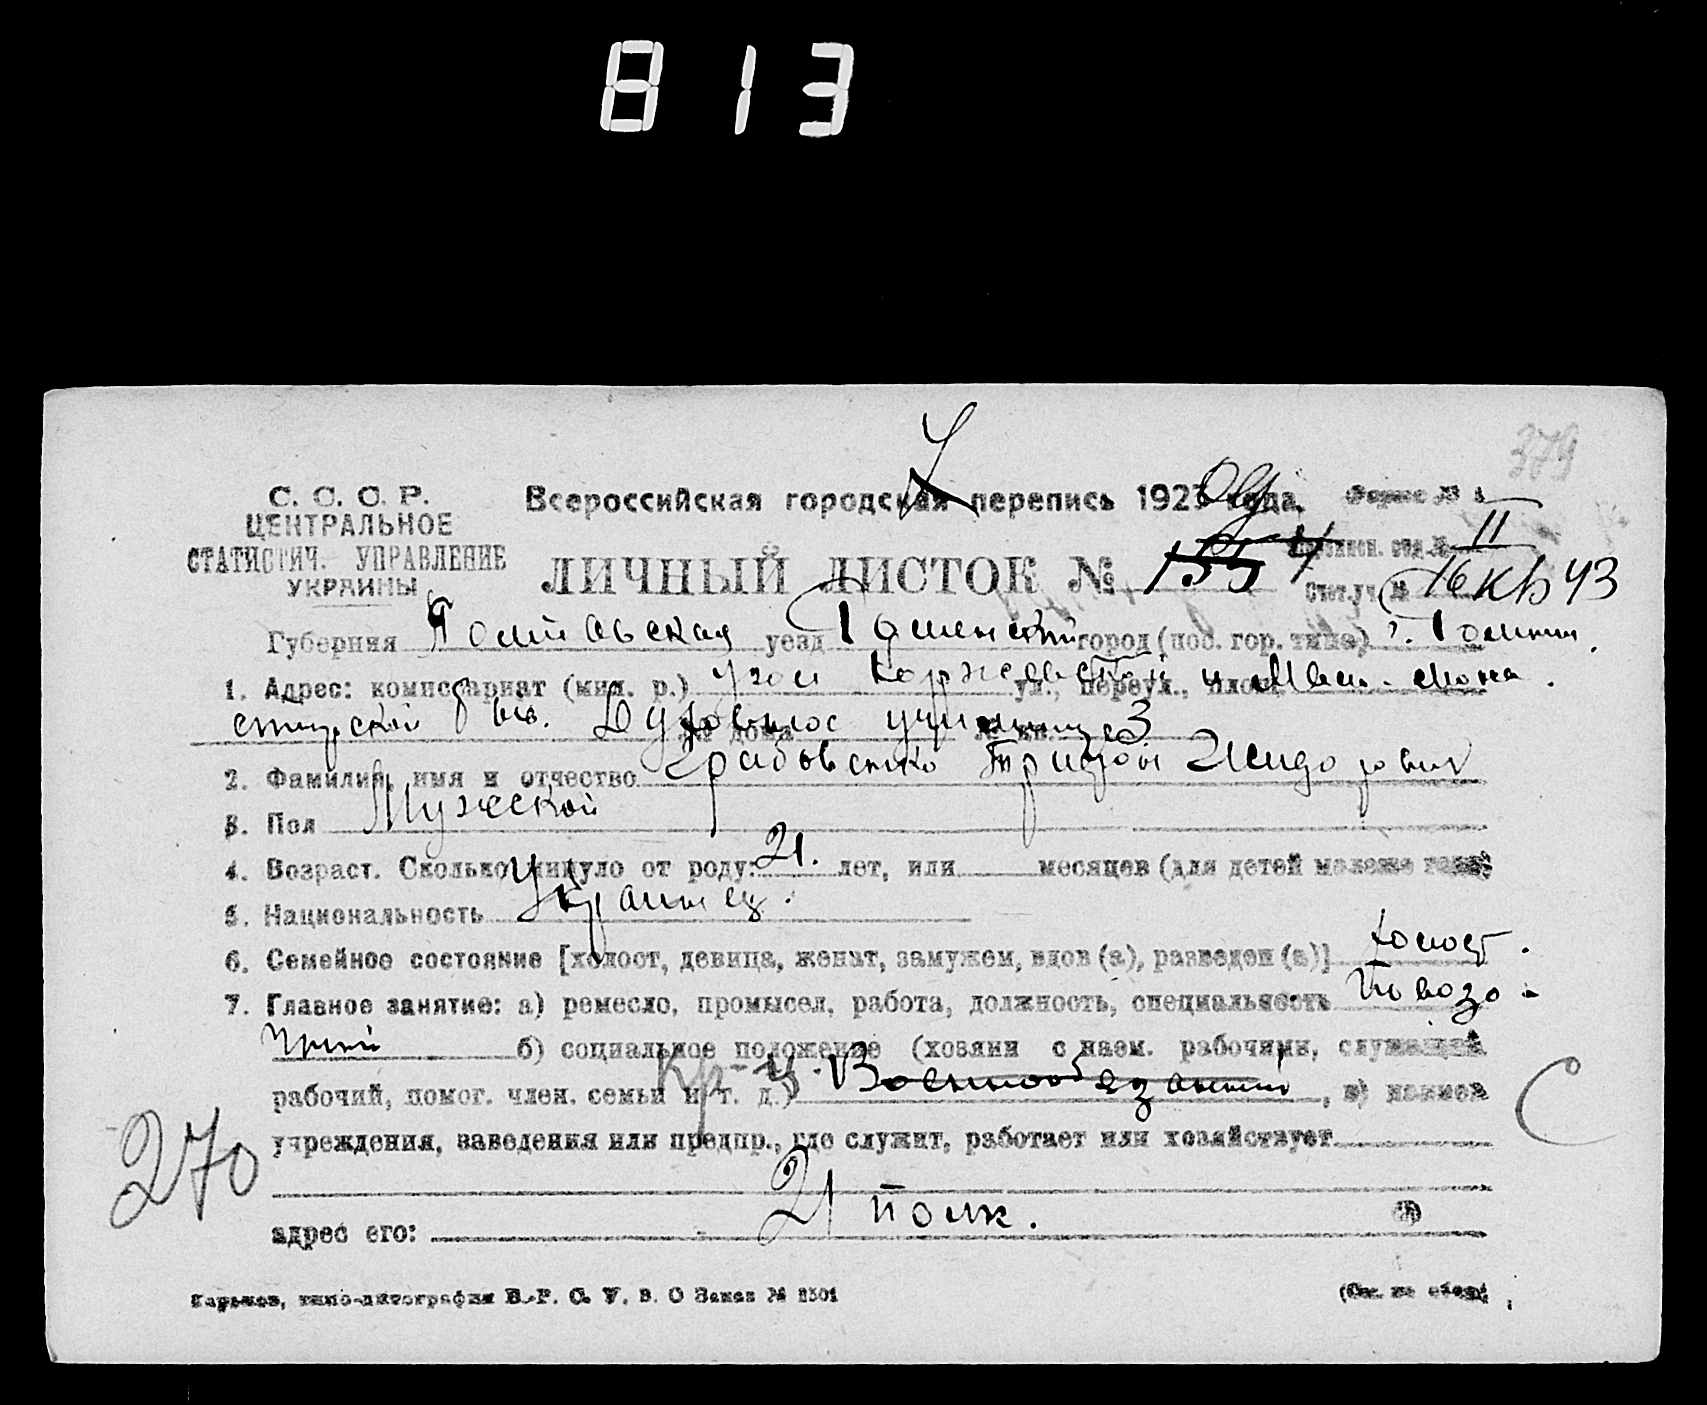 813
379
С. С. С. Р.
ЦЕНТРАЛЬНОЕ
СТАТИСТИЧ. УПРАВЛЕНИЕ
УКРАИНЫ
Всероссийская городская перепись 1923 года.
II
ЛИЧНЫЙ ЛИСТОК № 155 4
Губерния Полтавская уезд Роменский город (пос. гор. типа) г. Ромны
1. Адрес: комиссариат (мил. р.) угол Коржевской и ул., переул., площ.
быв. Духовное училище № дома № кв. 3
2. Фамилия, имя и отчество Грабовенко Трифон Исидорович
3. Пол Мужской
4. Возраст. Сколько минуло от роду: 21. лет, или месяцев (для детей моложе года)
5. Национальность Украинец.
6. Семейное состояние [холост, девица, женат, замужем, вдов (а), разведен (а)] холост.
7. Главное занятие: а) ремесло, промысел, работа, должность, специальность
б) социальное положение (хозяин с наем. рабочими, служащий
рабочий, помог. член. семьи и т. д.) Военнообязанный, в) 
учреждения, заведения или предпр., где служит, работает или хозяйствует
270
С
адрес его: 21 полк.
Харьков, типо-литография В. Р. С. У. В. О Заказ № 2501
(См. на обор.)